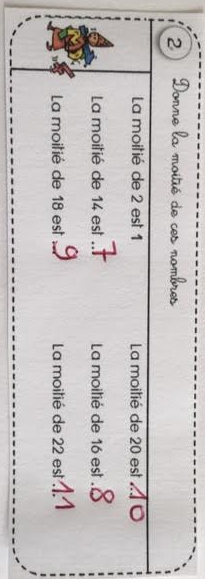 2 Donne la moitié de ces nombres
La moitié de 2 est 1 La moitié de 20 est ..10
La moitié de 14 est ..7 La moitié de 16 est ..8
La moitié de 18 est ..9 La moitié de 22 est ..11